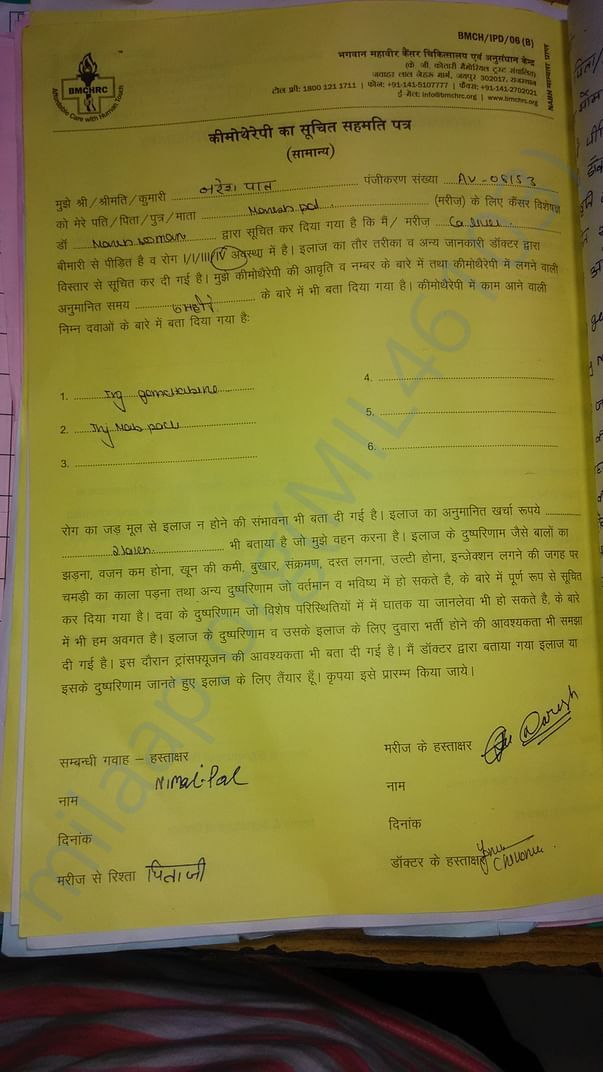 BMCH/IPD/06 (B)
BMCHRC
Affordable Care with Human Touch
भगवान महावीर कैंसर चिकित्सालय एवं अनुसंधान केन्द्र
(के. जी. कोठारी मैमोरियल ट्रस्ट संचालित)
जवाहर लाल नेहरू मार्ग, जयपुर 302017, राजस्थान
टोल फ्री: 1800 121 1711 | फोन: +91-141-5107777 | फैक्स: +91-141-2702021
ई-मेल: info@bmchrc.org | www.bmchrc.org
NABH मान्यता प्राप्त
कीमोथेरेपी का सूचित सहमति पत्र
(सामान्य)
मुझे श्री/श्रीमति/कुमारी नरेश पाल पंजीकरण संख्या
को मेरे पति/पिता/पुत्र/माता pal (मरीज) के लिए कैंसर विशेषज्ञ
डॉ द्वारा सूचित कर दिया गया है कि मैं/ मरीज
बीमारी से पीड़ित है व रोग I/I/III/IV अवस्था में है। इलाज का तौर तरीका व अन्य जानकारी डॉक्टर द्वारा
विस्तार से सूचित कर दी गई है। मुझे कीमोथेरेपी की आवृति व नम्बर के बारे में तथा कीमोथेरेपी में लगने वाली
अनुमानित समय के बारे में भी बता दिया गया है। कीमोथेरेपी में काम आने वाली
निम्न दवाओं के बारे में बता दिया गया है:
1. Inj
2. Inj
3.
4.
5.
6.
रोग का जड़ मूल से इलाज न होने की संभावना भी बता दी गई है। इलाज का अनुमानित खर्चा रूपये
भी बताया है जो मुझे वहन करना है। इलाज के दुष्परिणाम जैसे बालों का
झड़ना, वजन कम होना, खून की कमी, बुखार, संक्रमण, दस्त लगना, उल्टी होना, इन्जेक्शन लगने की जगह पर
चमड़ी का काला पड़ना तथा अन्य दुष्परिणाम जो वर्तमान व भविष्य में हो सकते है, के बारे में पूर्ण रूप से सूचित
कर दिया गया है। दवा के दुष्परिणाम जो विशेष परिस्थितियों में में घातक या जानलेवा भी हो सकते है, के बारे
में भी हम अवगत है। इलाज के दुष्परिणाम व उसके इलाज के लिए दुवारा भर्ती होने की आवश्यकता भी समझा
दी गई है। इस दौरान ट्रांसफ्यूजन की आवश्यकता भी बता दी गई है। मैं डॉक्टर द्वारा बताया गया इलाज या
इसके दुष्परिणाम जानते हुए इलाज के लिए तैयार हूँ। कृपया इसे प्रारम्भ किया जाये।
सम्बन्धी गवाह – हस्ताक्षर
Nimai Pal
नाम
दिनांक
मरीज से रिश्ता पिताजी
मरीज के हस्ताक्षर Naresh
नाम
दिनांक
डॉक्टर के हस्ताक्षर